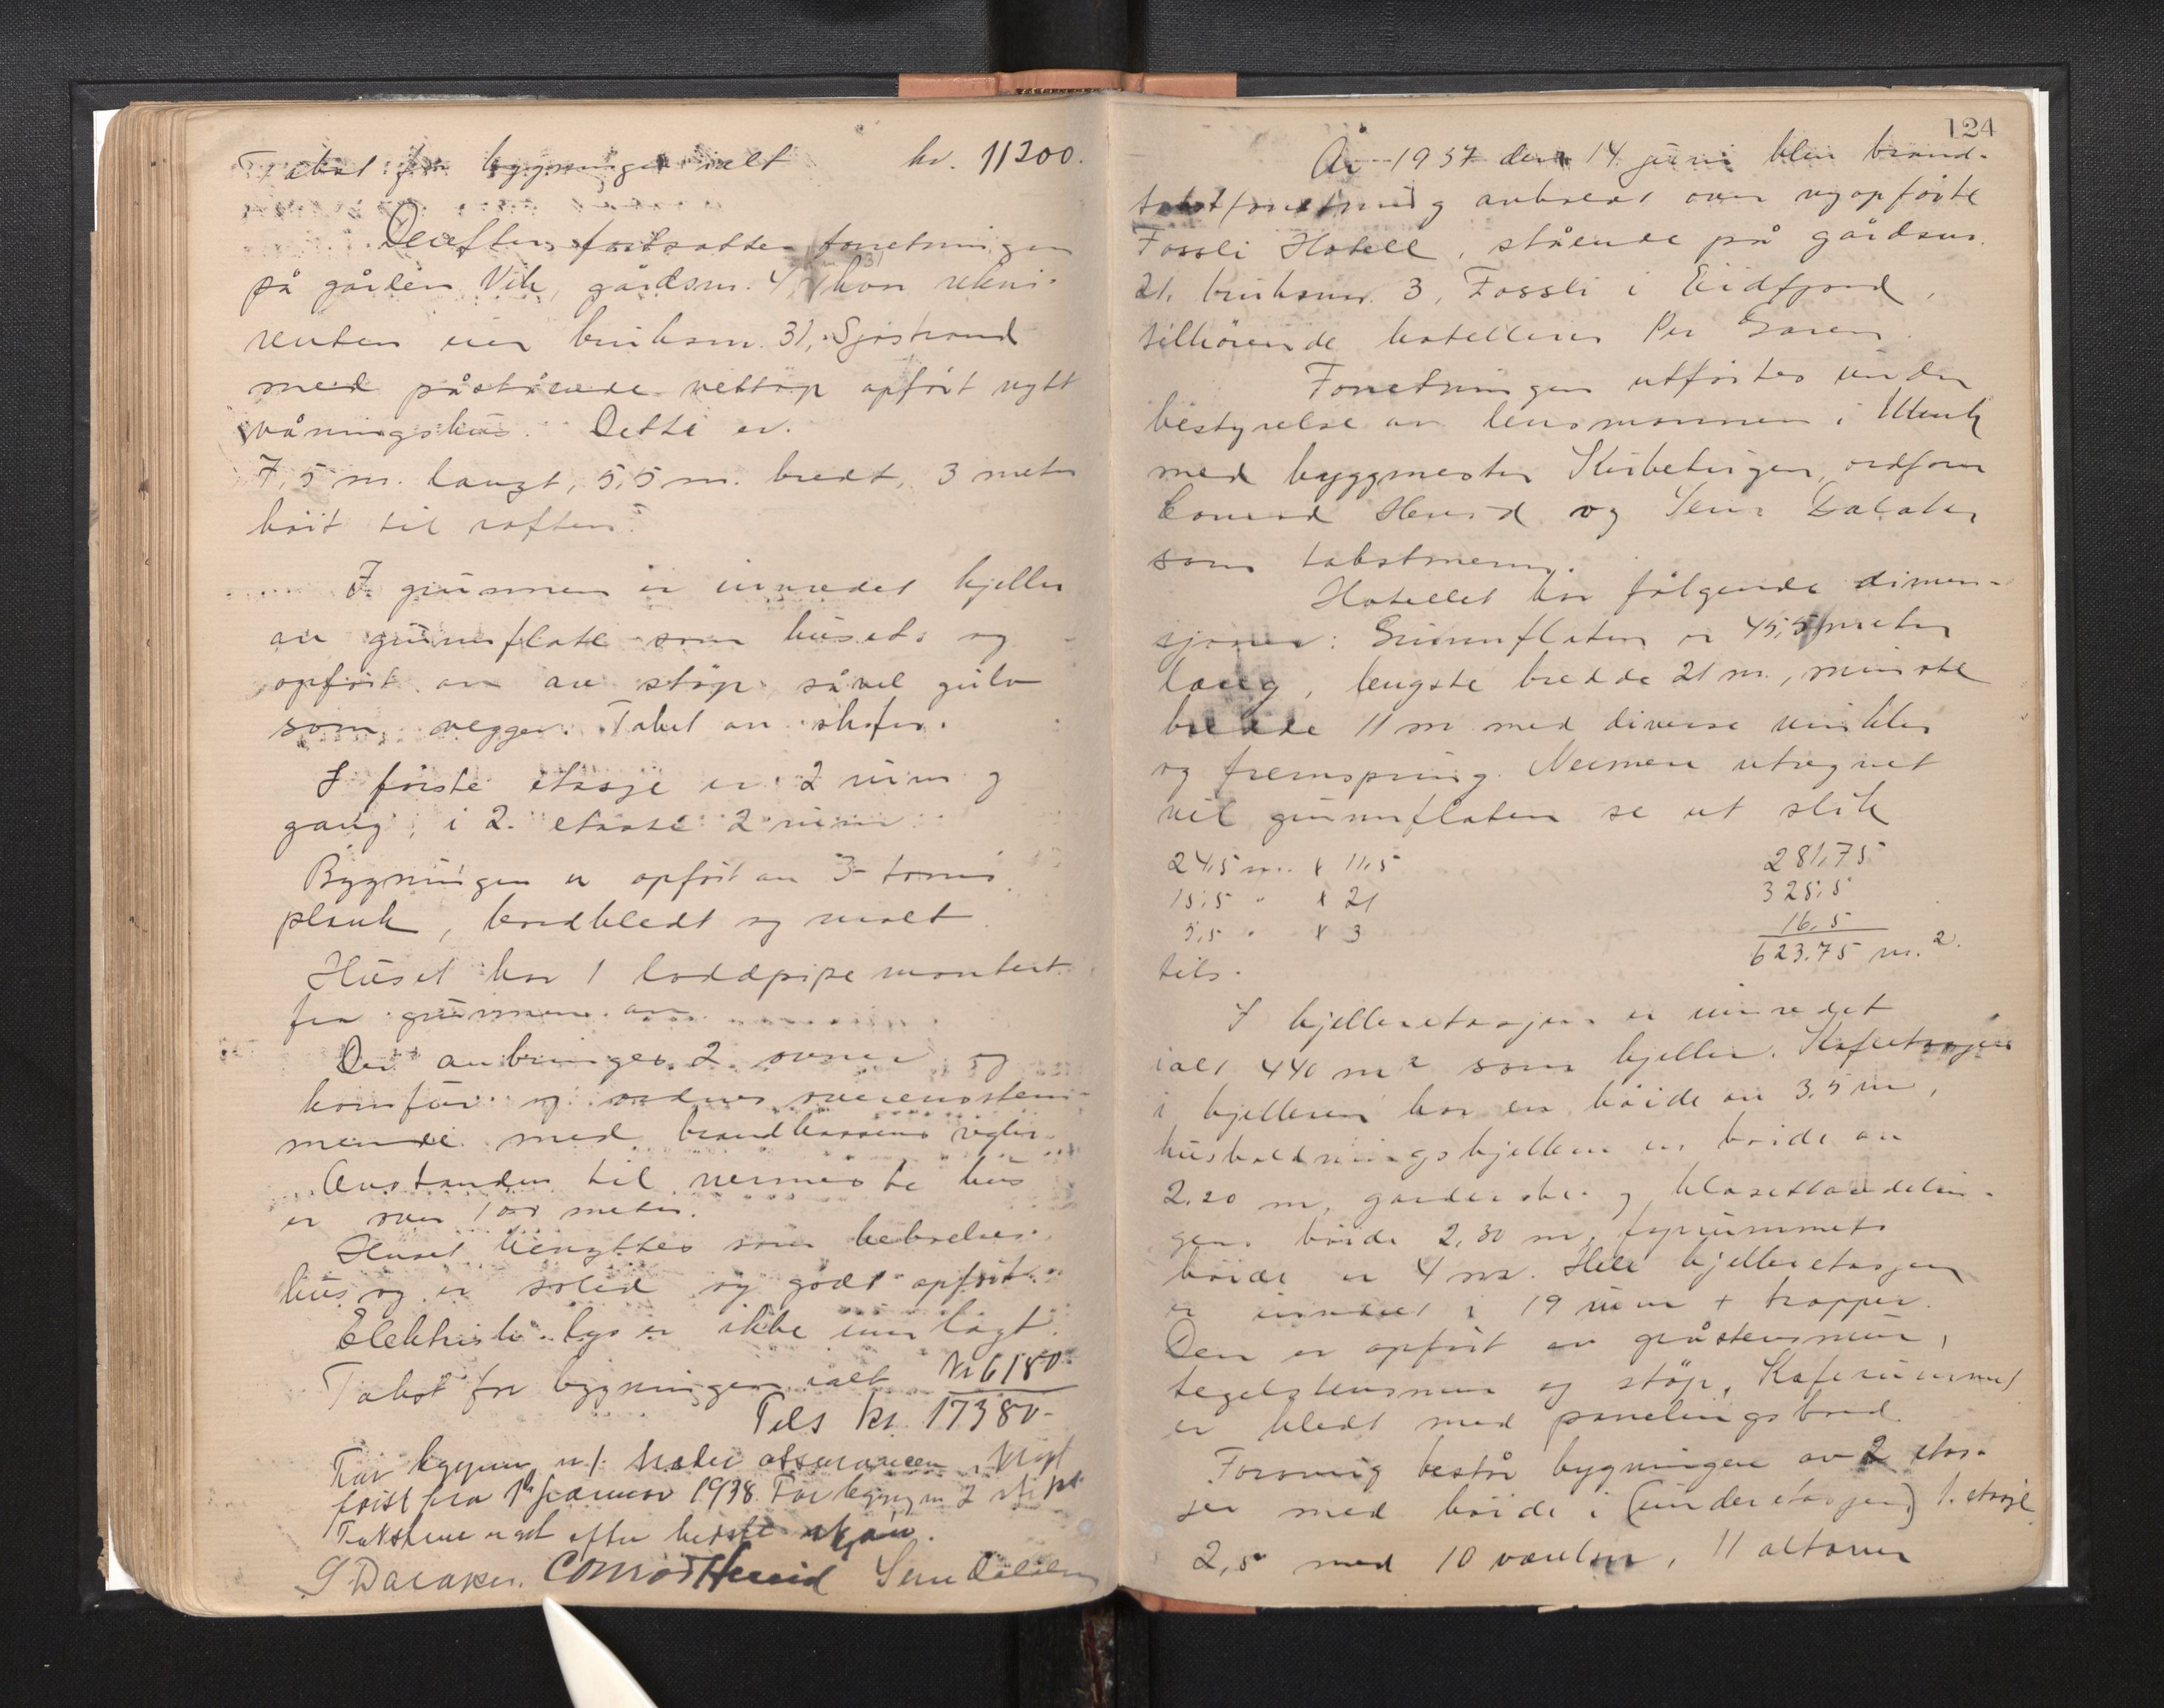 Takst for bygningen ialt kr. 11200.
Derefter fortsattes forretningen
på gården Vik, gårdsnr. 4, hvor rekvi-
renten eier bruksnr. 31, Sjøstrand
med påstående nettop opført nytt
våningshus. Dette er.
7,5 m. langt, 5,5 m. bredt, 3 meter
høit til raften.
I grunnen er innredet kjeller
av grunnflate som husets og
opført av av støp såvel gulv
som vegger. Taket av skifer.
I første etasje er 2 rum og
gang, i 2. etasje 2 rum
Bygningen er opført av 3 toms
plank, bordkledt og malt
Huset har 1 loddpipe montert
fra grunnen av
Der anbringes 2 ovner og
komfur og ordnes overenstem-
mende med brandkassens regler.
Avstanden til nermeste hus
er over 100 meter.
Huset benyttes som beboelses-
hus og er solid og godt opført.
Elektrisk lys er ikke innlagt.
Takst for bygningen ialt kr 6180-
Tils kr. 17380-
For bygning nr 1 træder assurancen i kraft
først fra 1ste januar 1938. For bygnng nr 2 straks
Taksterne er sat efter bedste skjøn.
S Dalaker. Conrad Hereid Sem Dalaker
124
År 1937 den 14 juni blev brand-
takstforretning avholdt over nyopførte
Fossli Hotell, stående på gårdsnr.
21, bruksnr. 3, Fossli i Eidfjord,
tilhørende hotelleier Per Garen
Forretningen utførtes under
bestyrelse av lensmannen i Ulvik
med byggmester Skisbetingen, ordfører
Conrad Hereid og Sem Dalaker
som takstmenn.
Hotellet har følgende dimen-
sjoner: Grunnflaten er 45,5 meter
lang, lengste bredde 21 m., minste
bredde 11 m med diverse vinkler
og fremspring. Nermere utregnet
vil grunnflaten se ut slik
24,5 m. x 11,5 281,75
15,5 " x 21 325,5
5,5 " x 3 16,5
tils. 623,75 m.2.
I kjelleretasjen er innredet
ialt 440 m2 som kjeller. Kafeetasjen
i kjelleren har en høide av 3,5 m,
husholdningskjelleren en høide av
2.20 m, garderobe- og klosettavdelin-
gens høide 2,30 m, fyrrummets
høide er 4 m. Hele kjelleretasjen
er innredet i 19 rum + trapper.
Den er opført av gråstensmur,
tegelstensmur og støp, Kaferummet
er kledt med panelingsbord.
Forøvrig består bygningen av 2 etas-
jer med høide i (underetasjen) 1. etasje
2,5 med 10 værelser, 11 altaner